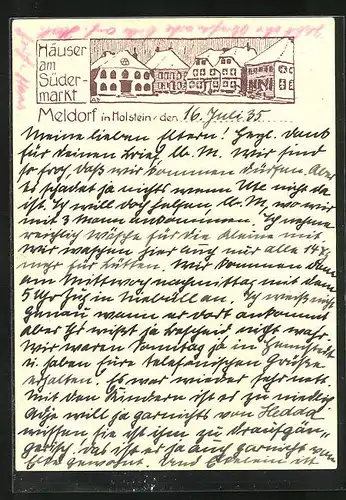 Häuser
am
Süder-
markt
Meldorf in Holstein, den 16. Juli 35
Meine lieben Eltern! Herzl. Dank
für deinen Brief, lb. M. Wir sind
so froh, daß wir kommen dürfen. Aber
es schadet ja nichts wenn Ute nicht da
ist. Ich will doch helfen, lb. M., wo wir
mit 3 Mann ankommen. Ich nehme
reichlich Wäsche für die Kleine mit
Wir waschen hier auch nur alle 14 Tg
nur für Lütten. Wir kommen dann
am Mittwoch nachmittag mit dem
5 Uhr Zug in Niebüll an. Ich weiß nicht
genau wann er dort ankommt
aber Ihr wißt ja Bescheid nicht wahr.
Wir waren Sonntag ja in
u. haben Eure telefonischen Grüße
erhalten. Es war wieder sehr nett.
Mit den Kindern ist es zu niedlich
will ja garnichts von
wissen sie ist ihm zu draufgän-
gerisch, das ist es ja auch garnicht von
gewohnt. Und ist